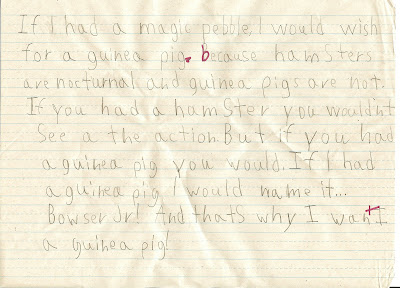 If I had a magic pebble, I would wish
for a guinea pig. because hamsters
are nocturnal and guinea pigs are not.
If you had a hamSter you wouldn't
See a the action. But if you had
a guinea pig you would. If I had
a guinea pig I would name it...
Bowser Jr! And thats why I want I
a guinea pig!